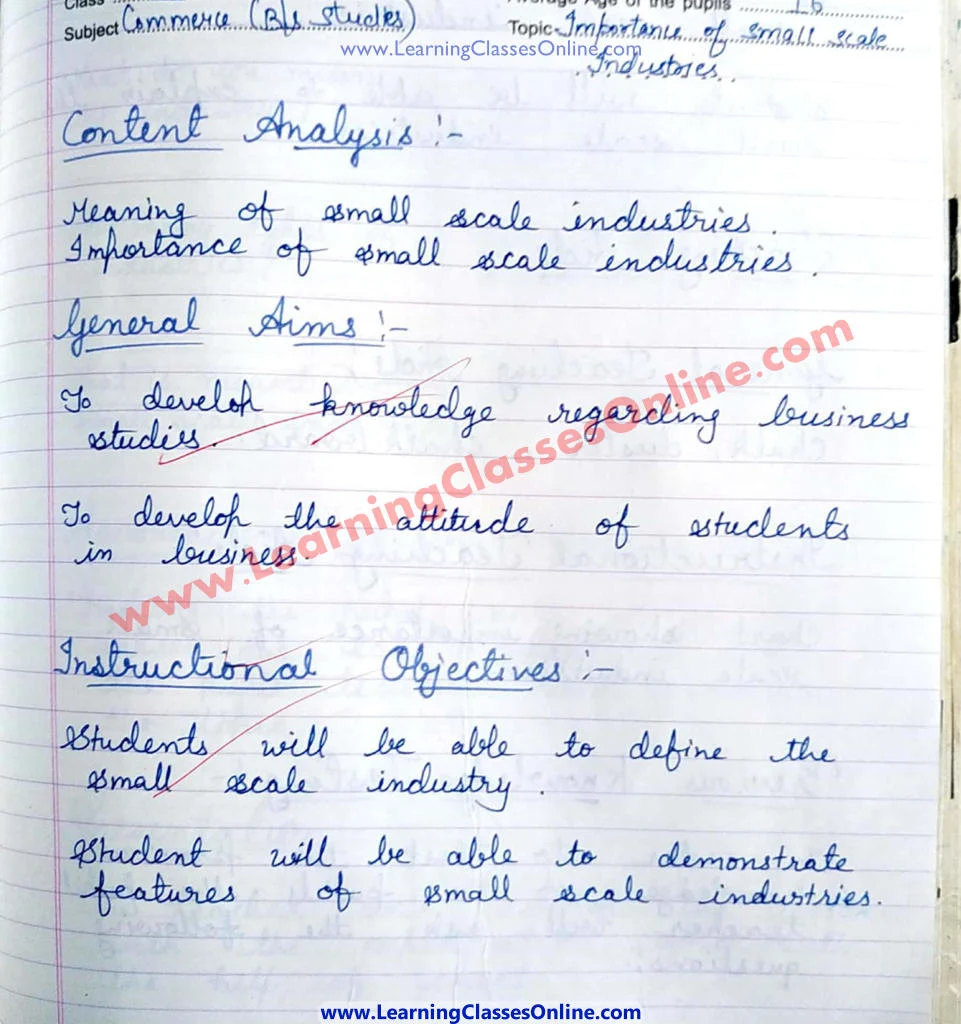 Class
Average Age of the pupils 16
Subject Commerce (B/s studies)
Topic Importance of small scale
Industries.
www.LearningClassesOnline.com
Content Analysis :-
Meaning of small scale industries.
Importance of small scale industries.
General Aims :-
To develop knowledge regarding business
studies.
To develop the attitude of students
in business.
www.LearningClassesOnline.com
Instructional Objectives :-
Students will be able to define the
small scale industry.
Student will be able to demonstrate
features of small scale industries.
www.LearningClassesOnline.com